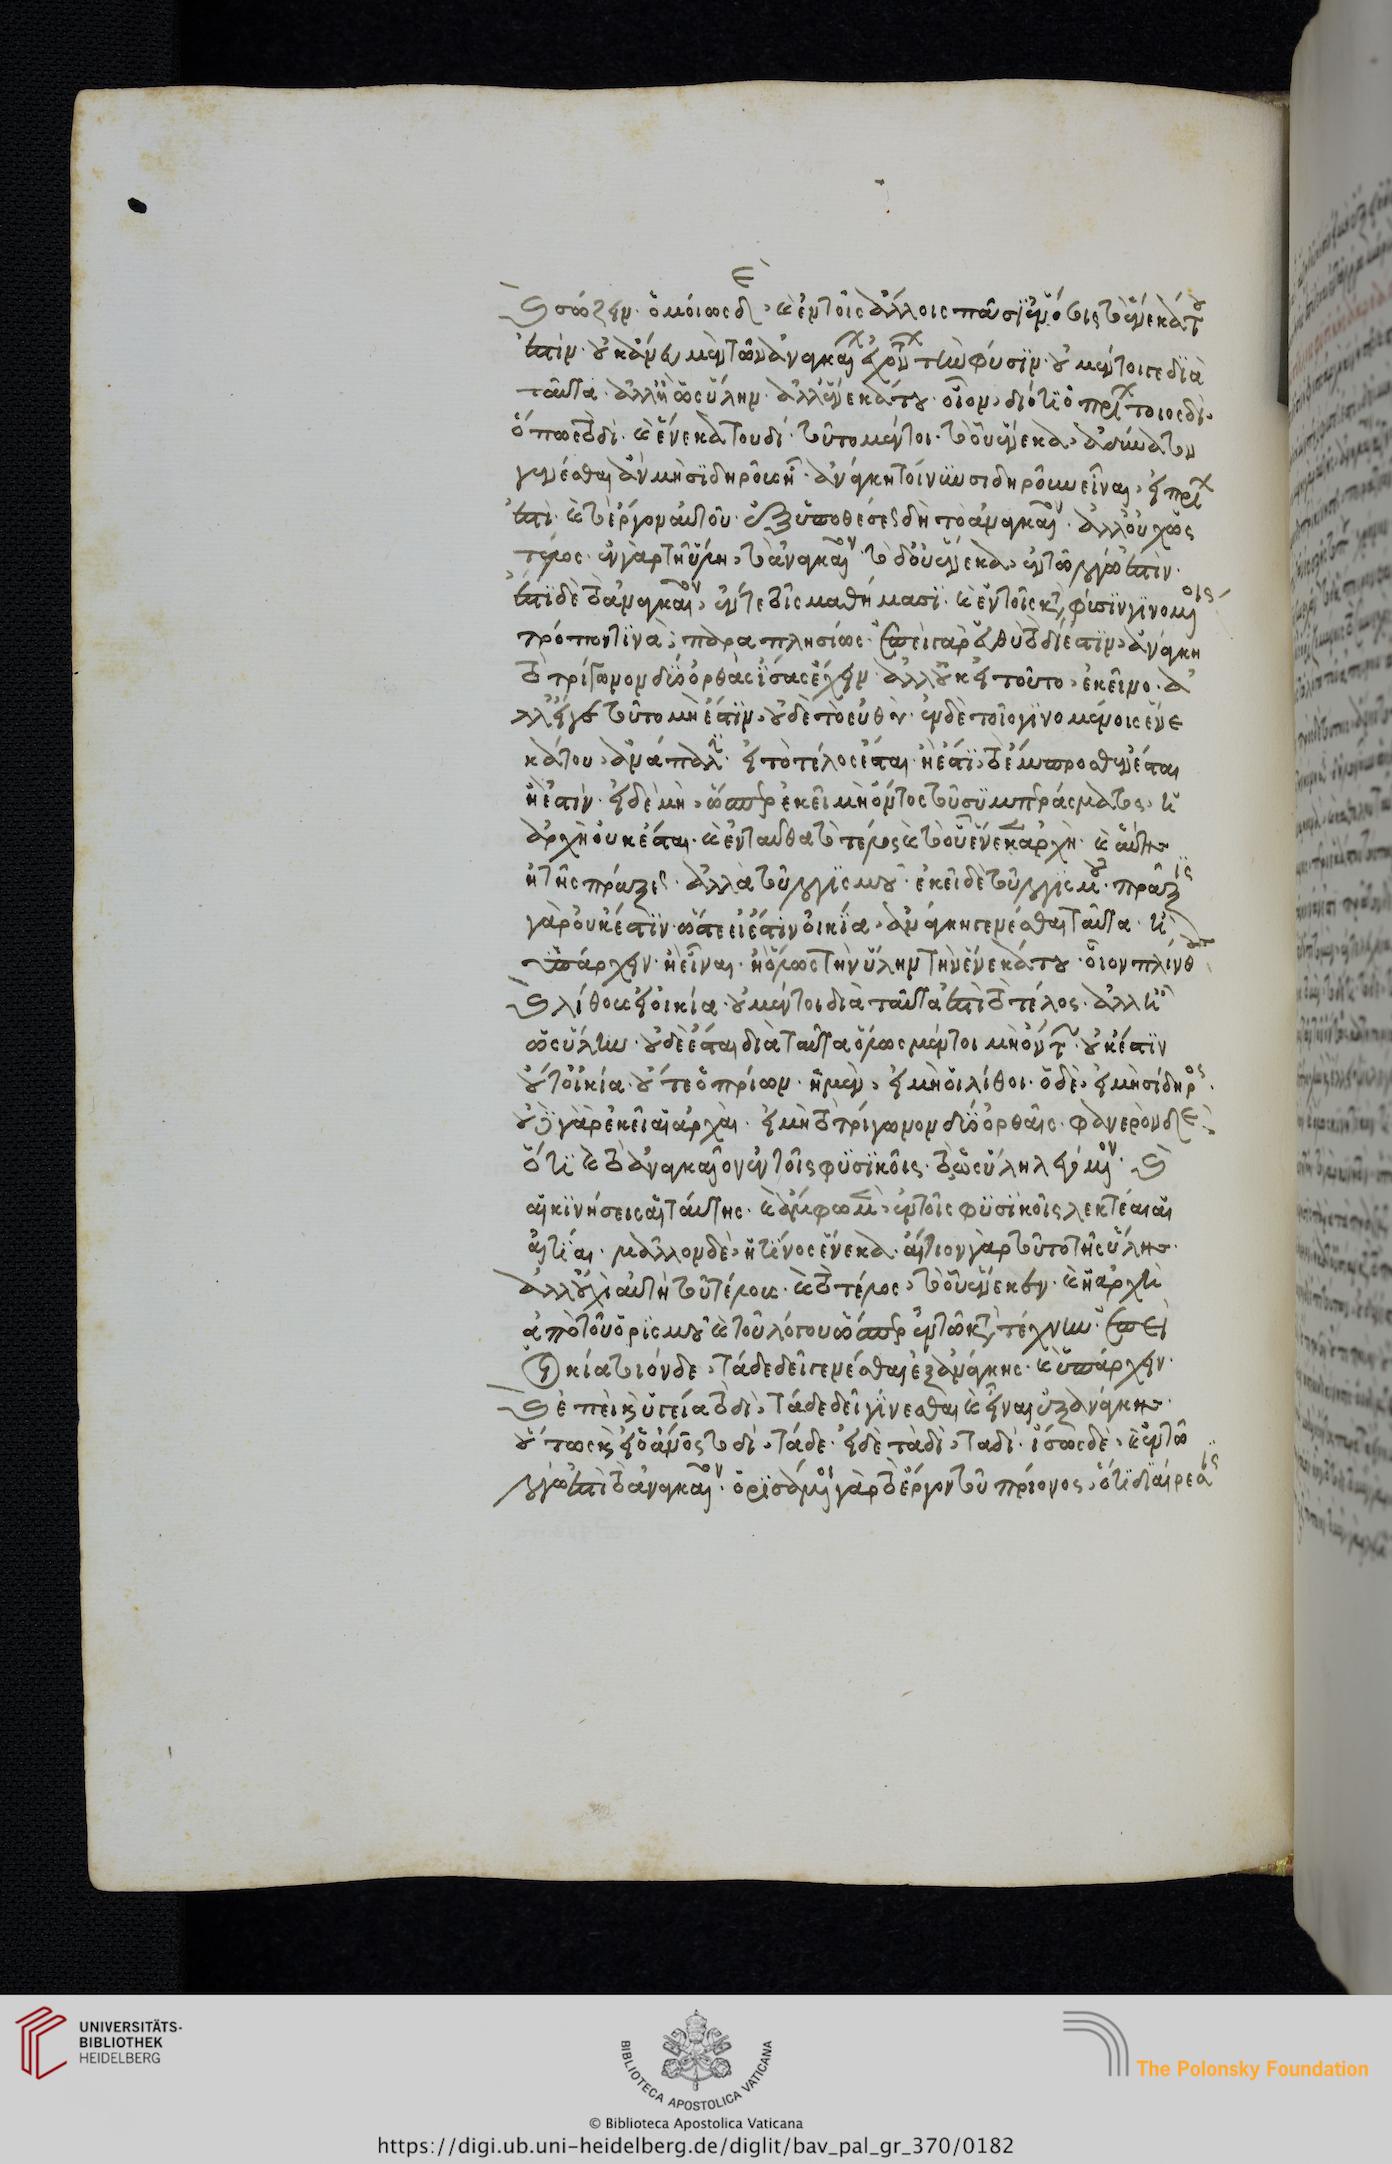 καὶ σώζειν· ὁμοίως δὲ καὶ ἐν τοῖς ἄλλοις πᾶσιν ἐν ὅσοις τὸ ἕνεκά του
ἐστίν· οὐκ ἄνευ μὲν τῶν ἀναγκαίαν ἐχόντων τὴν φύσιν· οὐ μέντοι γε διὰ
ταῦτα· ἀλλ' ἢ ὡς ὕλην· ἀλλ' ἕνεκά του· οἷον, διὸ τί ὁ πρίων τοιοσδί,
ὅπως τοδί· καὶ ἕνεκα τουδί· τοῦτο μέντοι· τὸ οὗ ἕνεκα, ἀδύνατον
γενέσθαι ἂν μὴ σιδηροῦς ᾖ· ἀνάγκη τοίνυν σιδηροῦν εἶναι, εἰ πρίων
ἐστὶ· καὶ τὸ ἔργον αὐτοῦ· ἐξ ὑποθέσεως δὴ τὸ ἀναγκαῖον· ἀλλ' οὐχ ὡς
τέλος· ἐν γὰρ τῇ ὕλῃ, τὸ ἀναγκαῖον· τὸ δ' οὗ ἕνεκα, ἐν τῷ λόγῳ ἐστίν·
ἔστι δὲ τὸ ἀναγκαῖον, ἔν τε τοῖς μαθήμασι· καὶ ἐν τοῖς κατὰ φύσιν γινομένοις
τρόπον τινὰ, παραπλησίως· ἐπεὶ γὰρ εὐθὺ τοδί ἐστιν, ἀνάγκη
τὸ τρίγωνον δύο ὀρθὰς ἴσας ἔχειν· ἀλλ' οὐκ εἰ τοῦτο, ἐκεῖνο· ἀ
λλ' εἴγε τοῦτο μὴ ἔστιν, οὐδὲ τὸ εὐθύ· ἐν δὲ τοῖς γινομένοις ἕνε
κά του, ἀνάπαλιν· εἰ τὸ τέλος ἔσται, ἢ ἔστι, τὸ ἔμπροσθεν ἔσται
ἢ ἔστιν· εἰ δὲ μὴ, ὥσπερ ἐκεῖ μὴ ὄντος τοῦ συμπεράσματος, ἡ
ἀρχὴ οὐκ ἔσται· καὶ ἐνταῦθα τὸ τέλος καὶ τὸ οὗ ἕνεκα ἀρχὴ· καὶ αὕτη
ἡ τῆς πράξεως· ἀλλὰ τοῦ λογισμοῦ· ἐκεῖ δὲ τοῦ λογισμοῦ· πρᾶξις
γὰρ οὐκ ἔστιν· ὥστε εἰ ἔστιν οἰκία, ἀνάγκη γενέσθαι ταῦτα· ἢ
ὑπάρχειν· ἢ εἶναι· ἢ ὅλως τὴν ὕλην τὴν ἕνεκά του· οἷον πλίνθους
καὶ λίθους εἰ οἰκία· οὐ μέντοι διὰ ταῦτα ἐστὶ τὸ τέλος· ἀλλ' ἢ
ὡς ὕλην· οὐδὲ ἔσται διὰ ταῦτα ὅλως μέντοι μὴ ὄντων· οὐκ ἔστιν
οὔτ' οἰκία· οὔτε ὁ πρίων· ἡ μὲν, εἰ μὴ οἱ λίθοι· ὁ δὲ, εἰ μὴ σίδηρος·
οὐδὲ γὰρ ἐκεῖ αἱ ἀρχαί· εἰ μὴ τὸ τρίγωνον δύο ὀρθαῖς· φανερὸν δὲ
ὅτι καὶ τὸ ἀναγκαῖον ἐν τοῖς φυσικοῖς· τὸ ὡς ὕλη λεγόμενον· καὶ
αἱ κινήσεις αἱ ταύτης· καὶ ἄμφω μὲν, ἐν τοῖς φυσικοῖς λεκτέαι αἱ
αἰτίαι· μᾶλλον δὲ, ἡ τίνος ἕνεκα· αἴτιον γὰρ τοῦτο τῆς ὕλης·
ἀλλ' οὐχὶ αὐτὴ τοῦ τέλους· καὶ τὸ τέλος, τὸ οὗ ἕνεκεν· καὶ ἡ ἀρχὴ
ἀπὸ τοῦ ὁρισμοῦ καὶ τοῦ λόγου ὥσπερ ἐν τῶ κατὰ τέχνην· ἐπεὶ
οἰκία τοιόνδε, τάδε δεῖ γενέσθαι ἐξ ἀνάγκης· καὶ ὑπάρχειν·
καὶ ἐπεὶ ἡ ὑγεία τοδί, τάδε δεῖ γίνεσθαι καὶ εἶναι ἐξ ἀνάγκης·
οὕτως καὶ εἰ ὁ ἄνθρωπος τοδί, τάδε· εἰ δὲ ταδὶ, ταδί· ἴσως δὲ, καὶ ἐν τῶ
λόγω ἐστὶ τὸ ἀναγκαῖον· ὁρισαμένω γὰρ τὸ ἔργον τοῦ πρίονος, ὅτι διαίρεσις
UNIVERSITÄTS-
BIBLIOTHEK
HEIDELBERG
BIBLIOTECA APOSTOLICA VATICANA
The Polonsky Foundation
© Biblioteca Apostolica Vaticana
https://digi.ub.uni-heidelberg.de/diglit/bav_pal_gr_370/0182